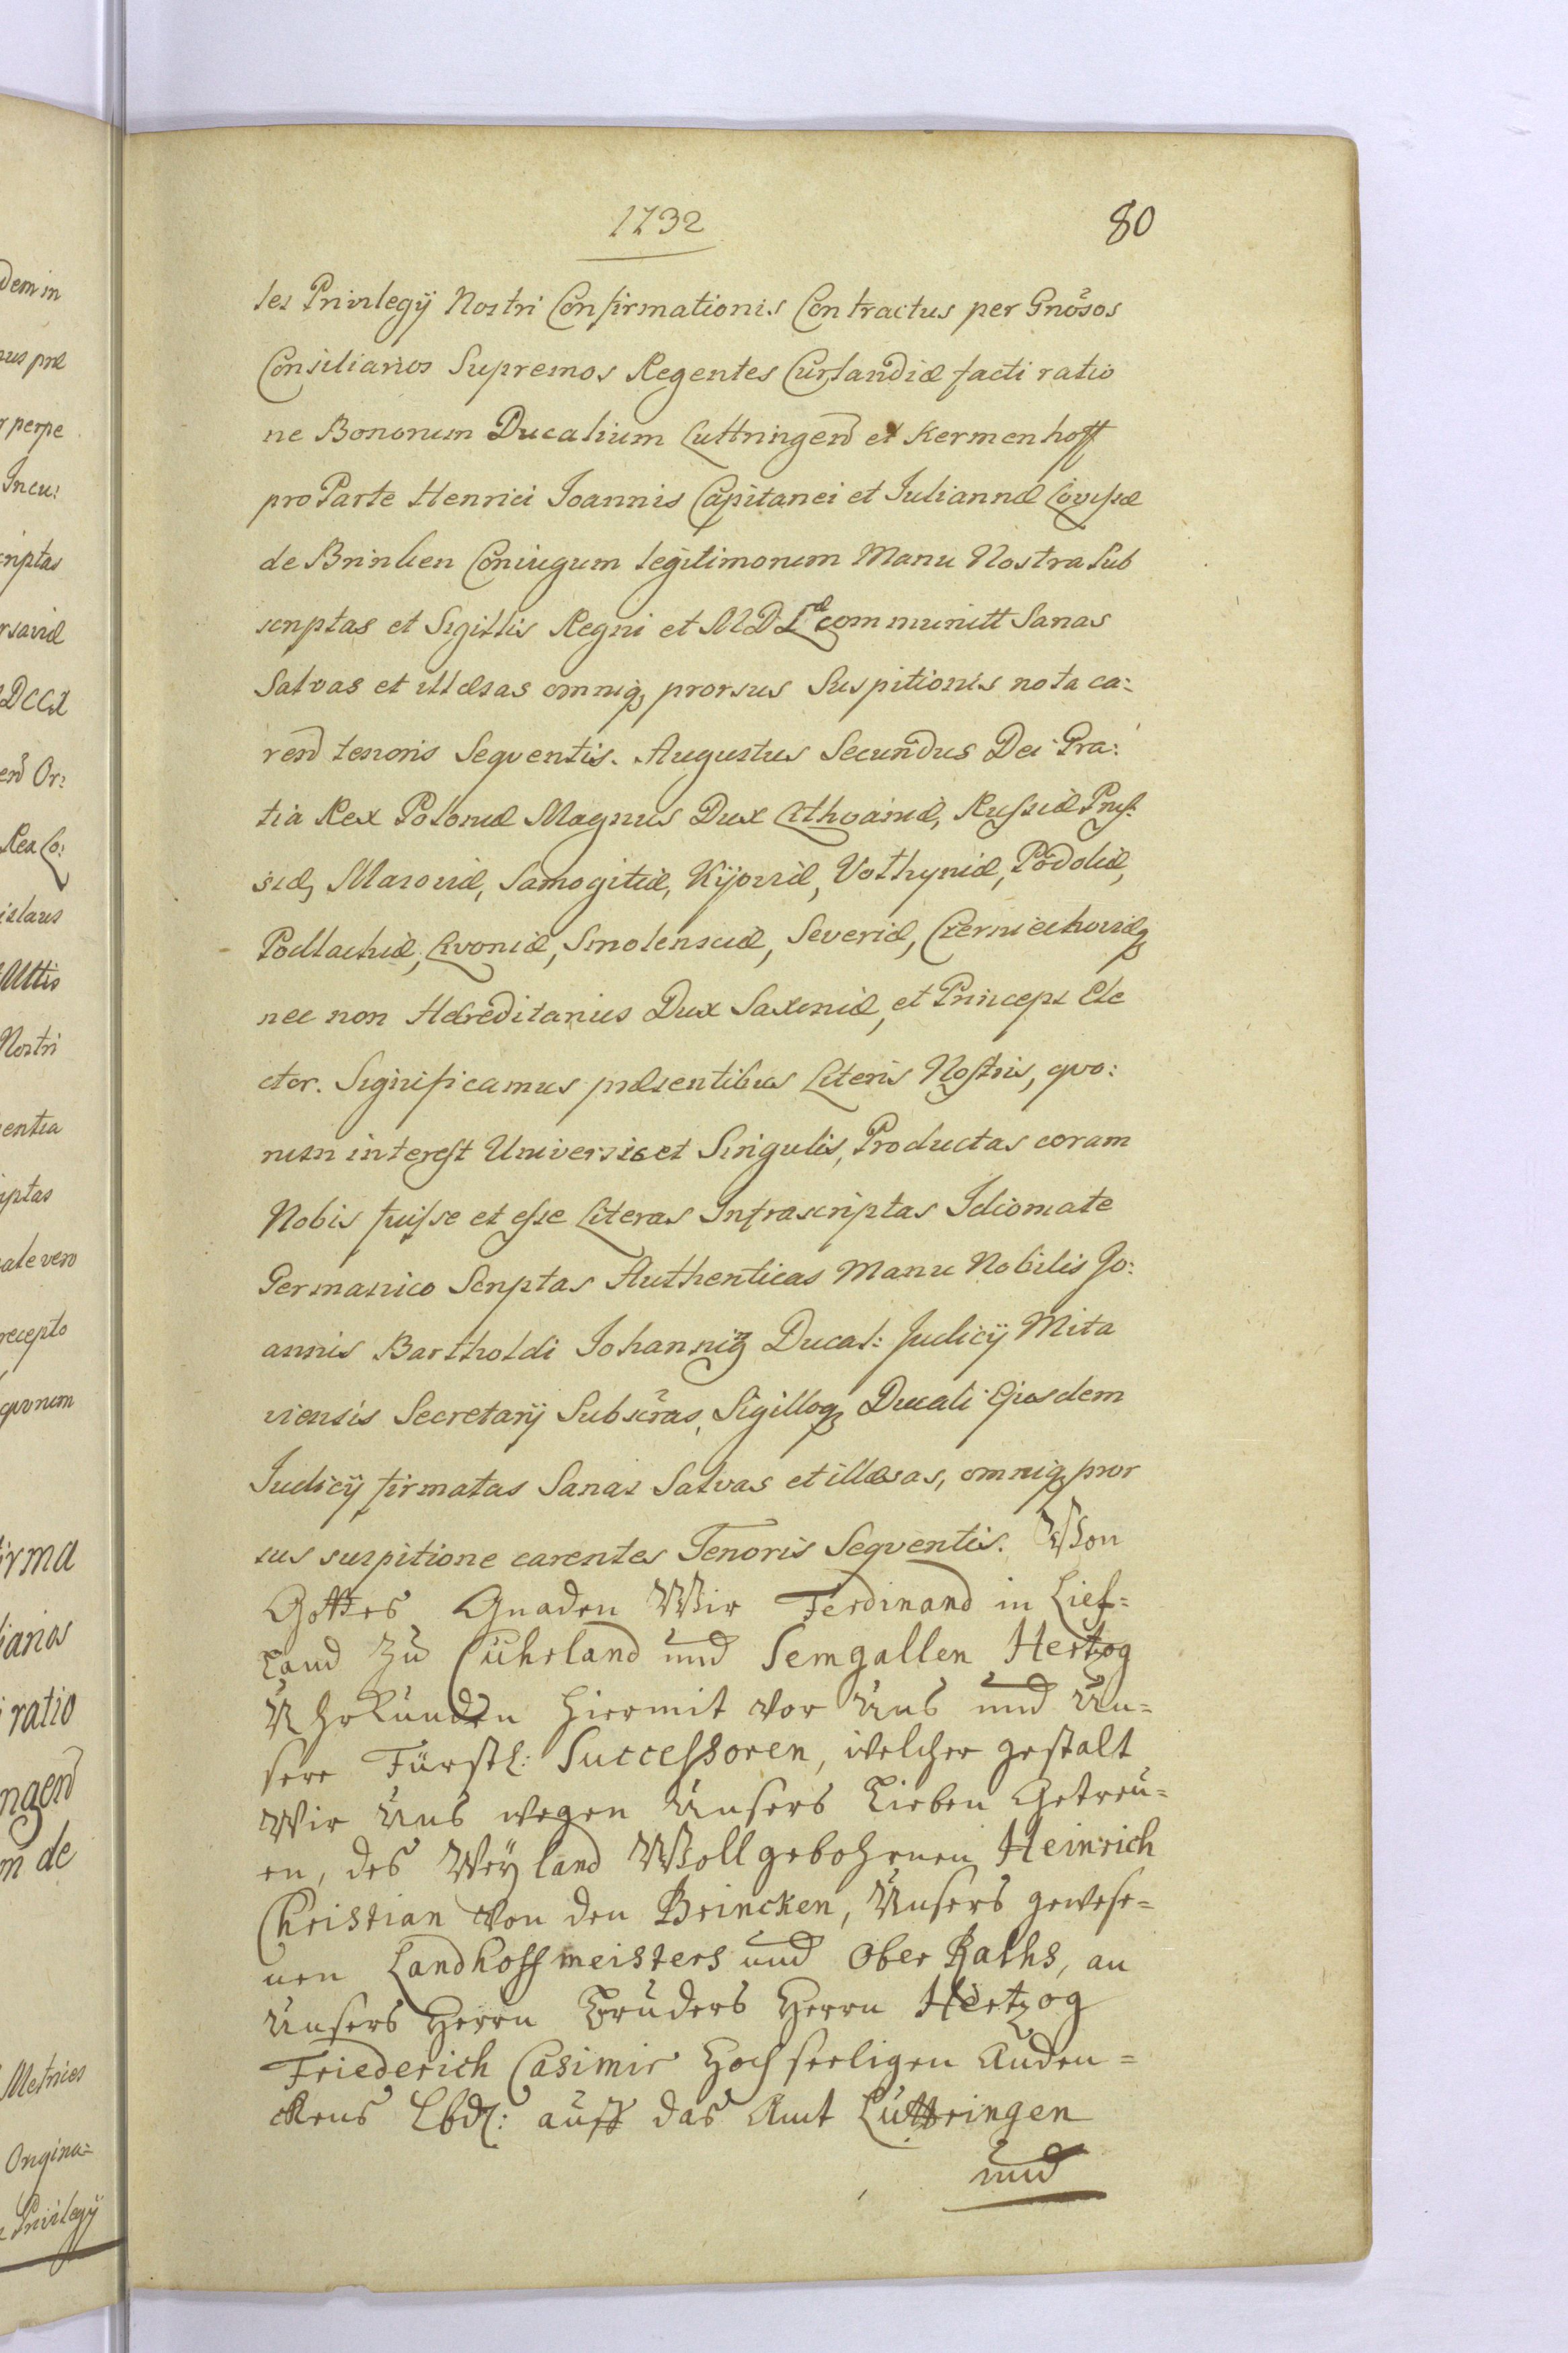 1732
80
les Privilegÿ Nostri Confirmationis Contractus per Gnosos
Consiliarios Supremos Regentes Curlandiæ facti ratio
ne Bonorum Ducalium Luttringen et Kermenhoff
pro Parte Henrici Joannis Capitanei et Juliannæ Lovisæ
de Brinken Coniugum legitimorum Manu Nostra Sub
scriptas et Sigillis Regni et M D L communitt Sanas
Salvas et illæsas omniq prorsus Suspitionis nota ca:
rend tenoris Seqventis. Augustus Secundus Dei Gra:
tia Rex Poloniæ Magnus Dux Lithvaniæ, Russiæ Prus:
siæ, Masoviæ, Samogitiæ, Kijoviæ, Volhyniæ, Podoliæ,
Podlachiæ, Livoniæ, Smolensciæ, Severiæ, Czerniechoviæq
nec non Hæreditarius Dux Saxoniæ, et Princeps Ele
ctor. Significamus præsentibus Literis Nostris, qvo:
rum interest Universis et Singulis, Productas coram
Nobis fuisse et esse Literas Infrascriptas Idiomate
Germanico Scriptas Authenticas Manu Nobilis Jo:
annis Bartholdi Johannitz Ducal: Judicÿ Mita
viensis Secretarÿ Subscras, Sigilloq Ducali Ejusdem
Judicÿ firmatas Sanas Salvas et illæsas, omniq pror
sus suspitione carentes Tenoris Seqventis. Von
Gottes Gnaden Wir Ferdinand in Lief=
land zu Cuhrland und Semgallen Hertzog
Uhrkunden hiermit vor Uns und Un=
sere Fürstl: Successoren, welcher gestalt
Wir Uns wegen Unsers Lieben Getreu=
en, des Weyland Wollgebohrnen Heinrich
Christian von den Brincken, Unsers gewese=
nen Landhoffmeisters und Ober Raths, an
Unsers Herrn Bruders Herrn Hertzog
Friederich Casimir Hochseeligen Anden=
ckens Lbd: auff das Amt Luttringen
und